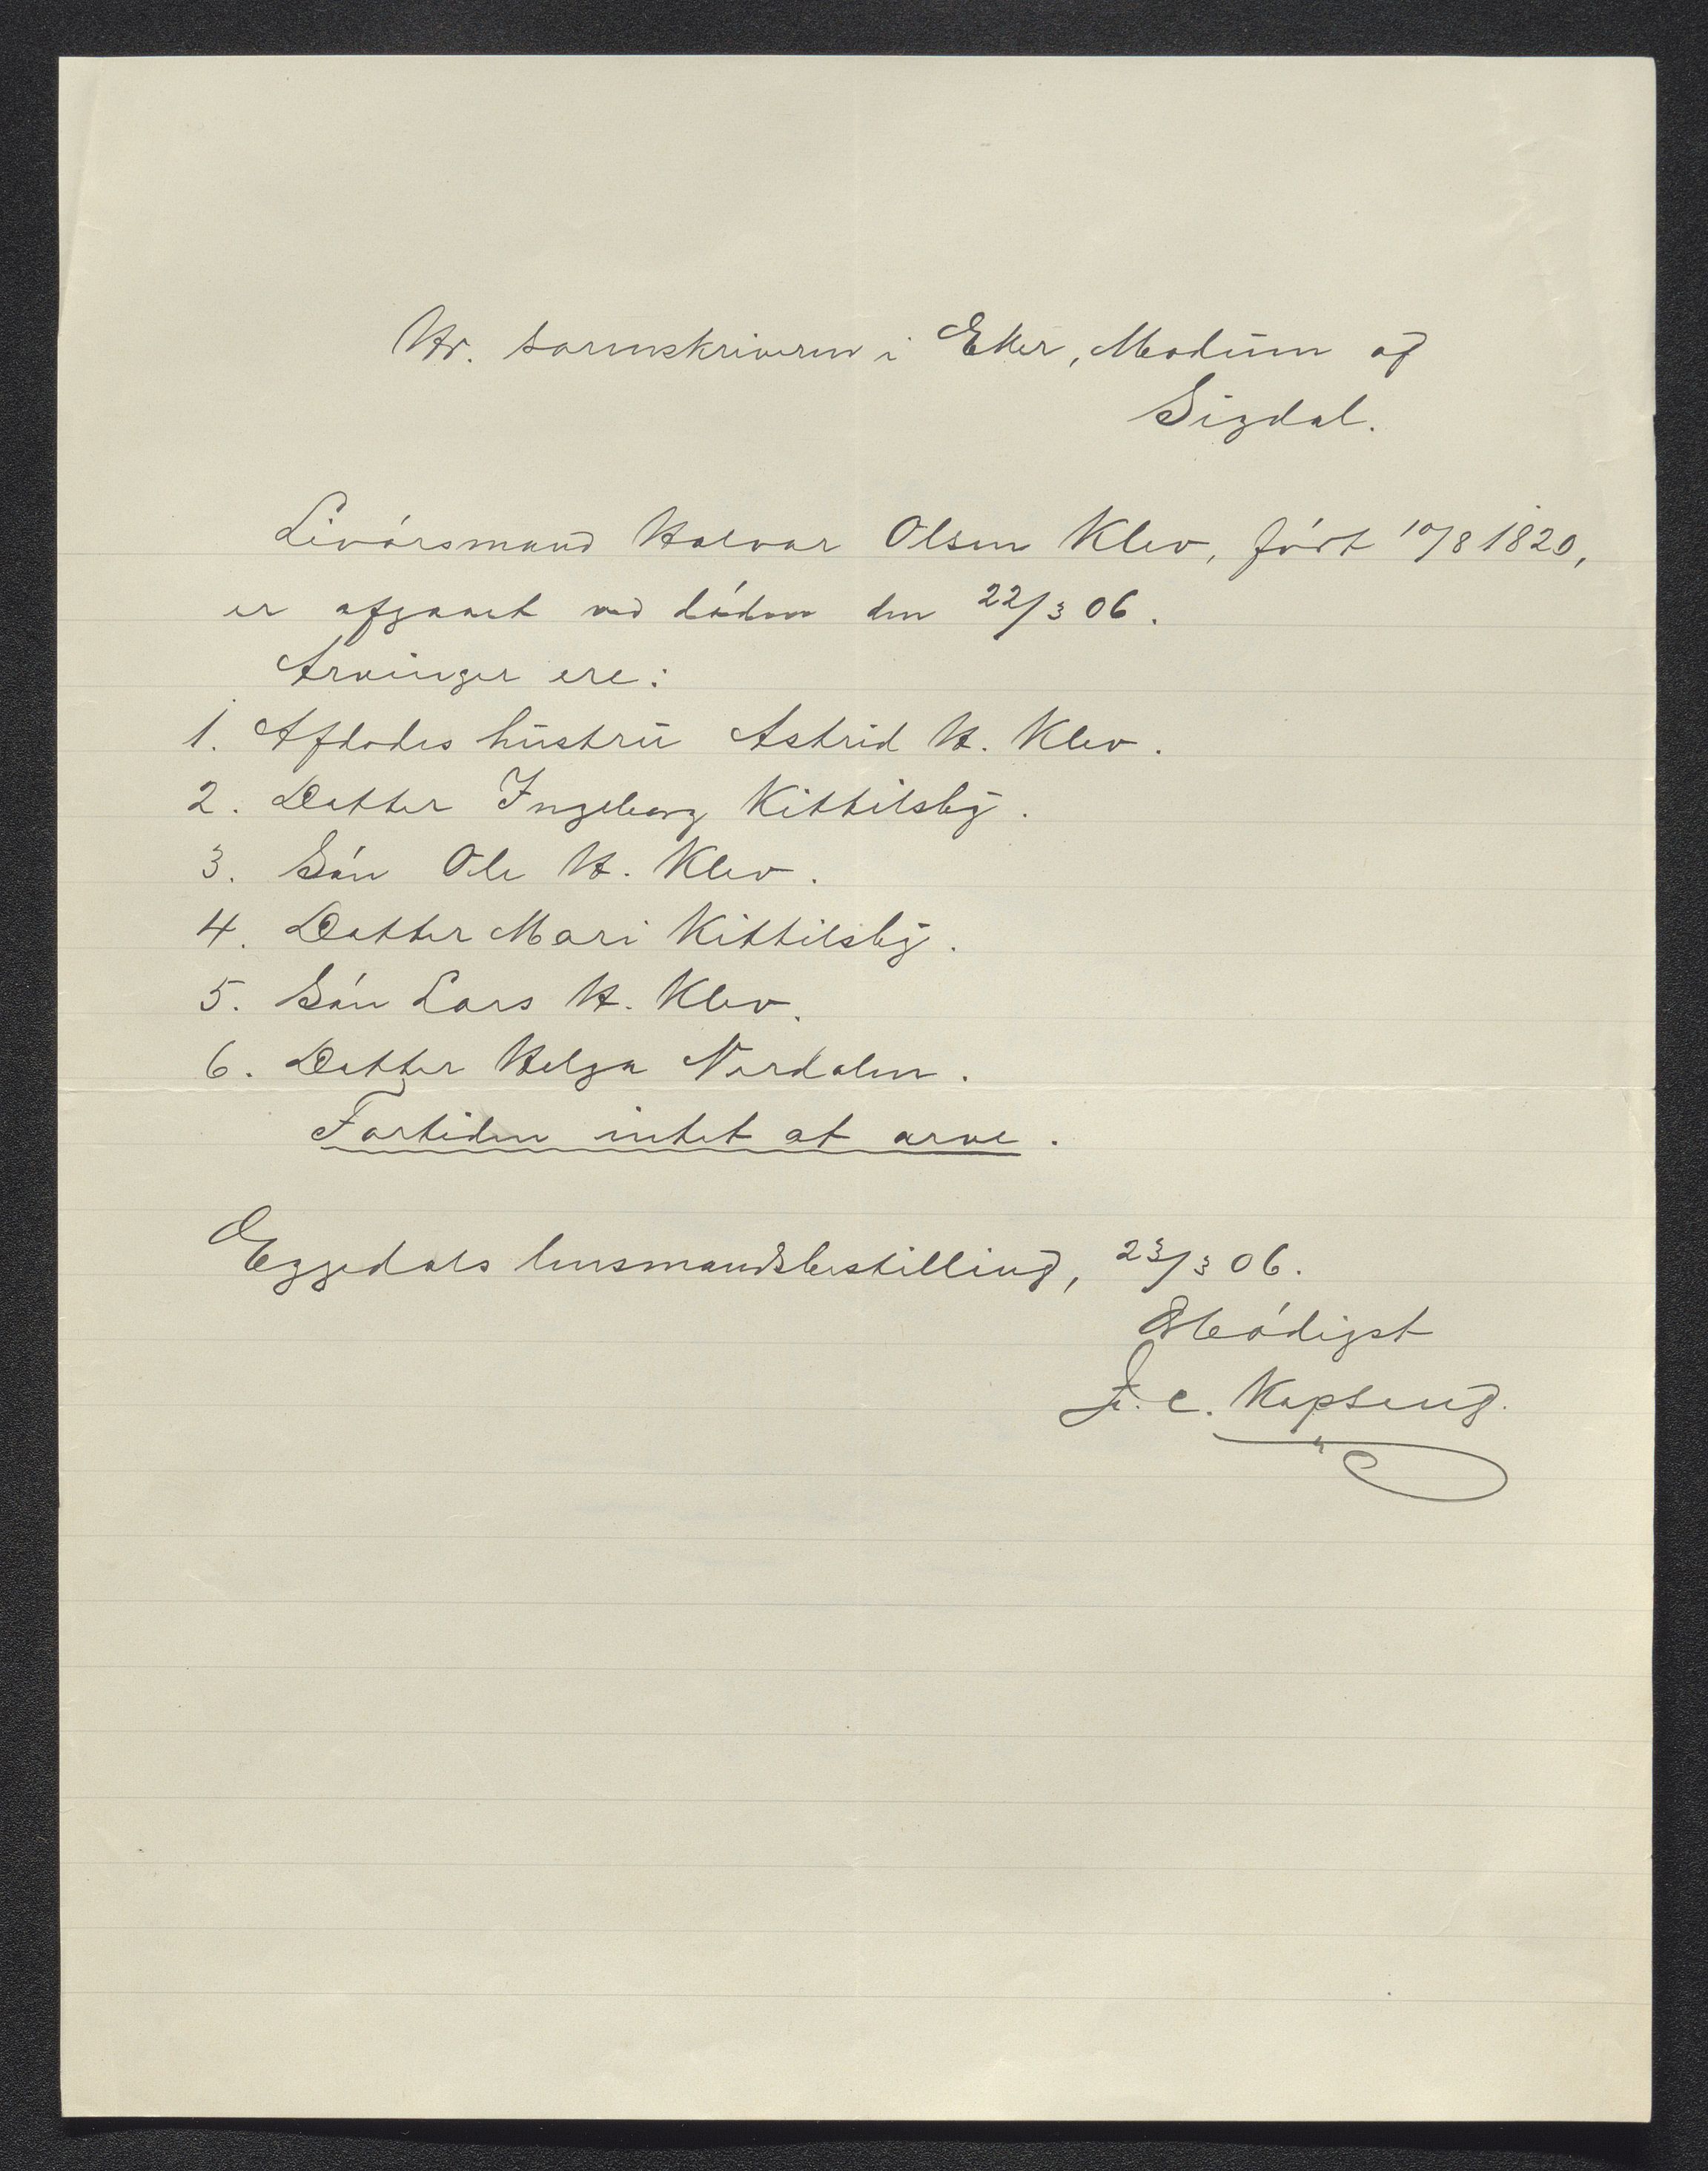 Hr. sorenskriveren i Eker, Modum og
Sigdal.
Livørsmand Halvor Olsen Klev, født 10/8 1820,
er afgaaet ved døden den 22/3 06.
Arvinger ere:
1. Afdødes hustru Astrid H. Klev.
2. Datter Ingeborg Kittilsby.
3. Søn Ole H. Klev.
4. Datter Mari Kittilsby.
5. Søn Lars H. Klev.
6. Datter Helga Nordalen.
Fortiden intet at arve.
Eggedals lensmandsbestilling, 23/3 06.
Ærbødigst
F. C. Kopseng.